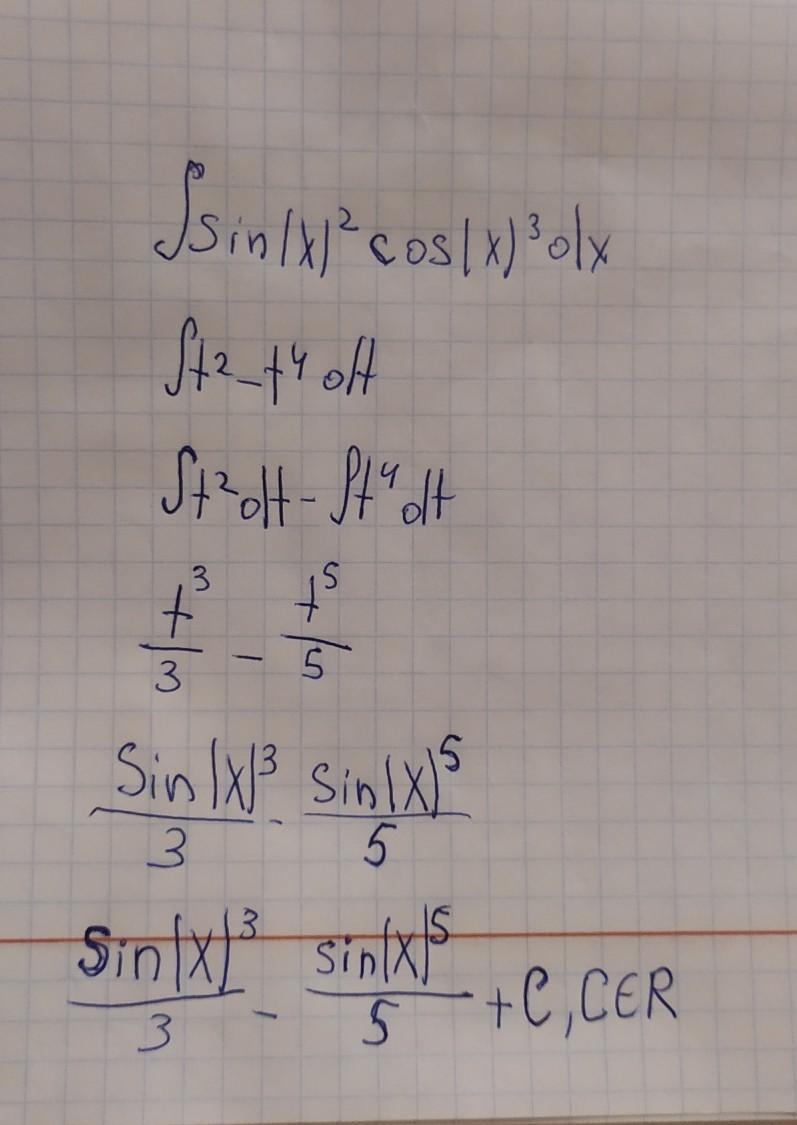 ∫sin(x)² cos(x)³ dx
∫t² - t⁴ dt
∫t² dt - ∫t⁴ dt
t³/3 - t⁵/5
Sin(x)³/3 - sin(x)⁵/5
Sin(x)³/3 - sin(x)⁵/5 + C, C∈R